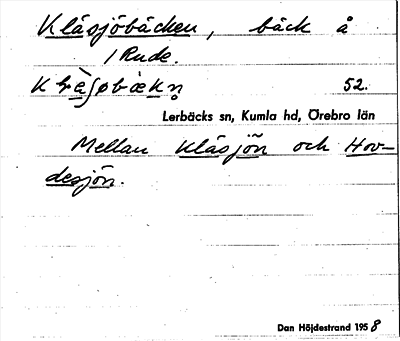 Klåsjöbäcken, bäck å
/ Rude.
52.
Lerbäcks sn, Kumla hd, Örebro län
Mellan Klåsjön och Hov-
desjön.
Dan Höjdestrand 1958